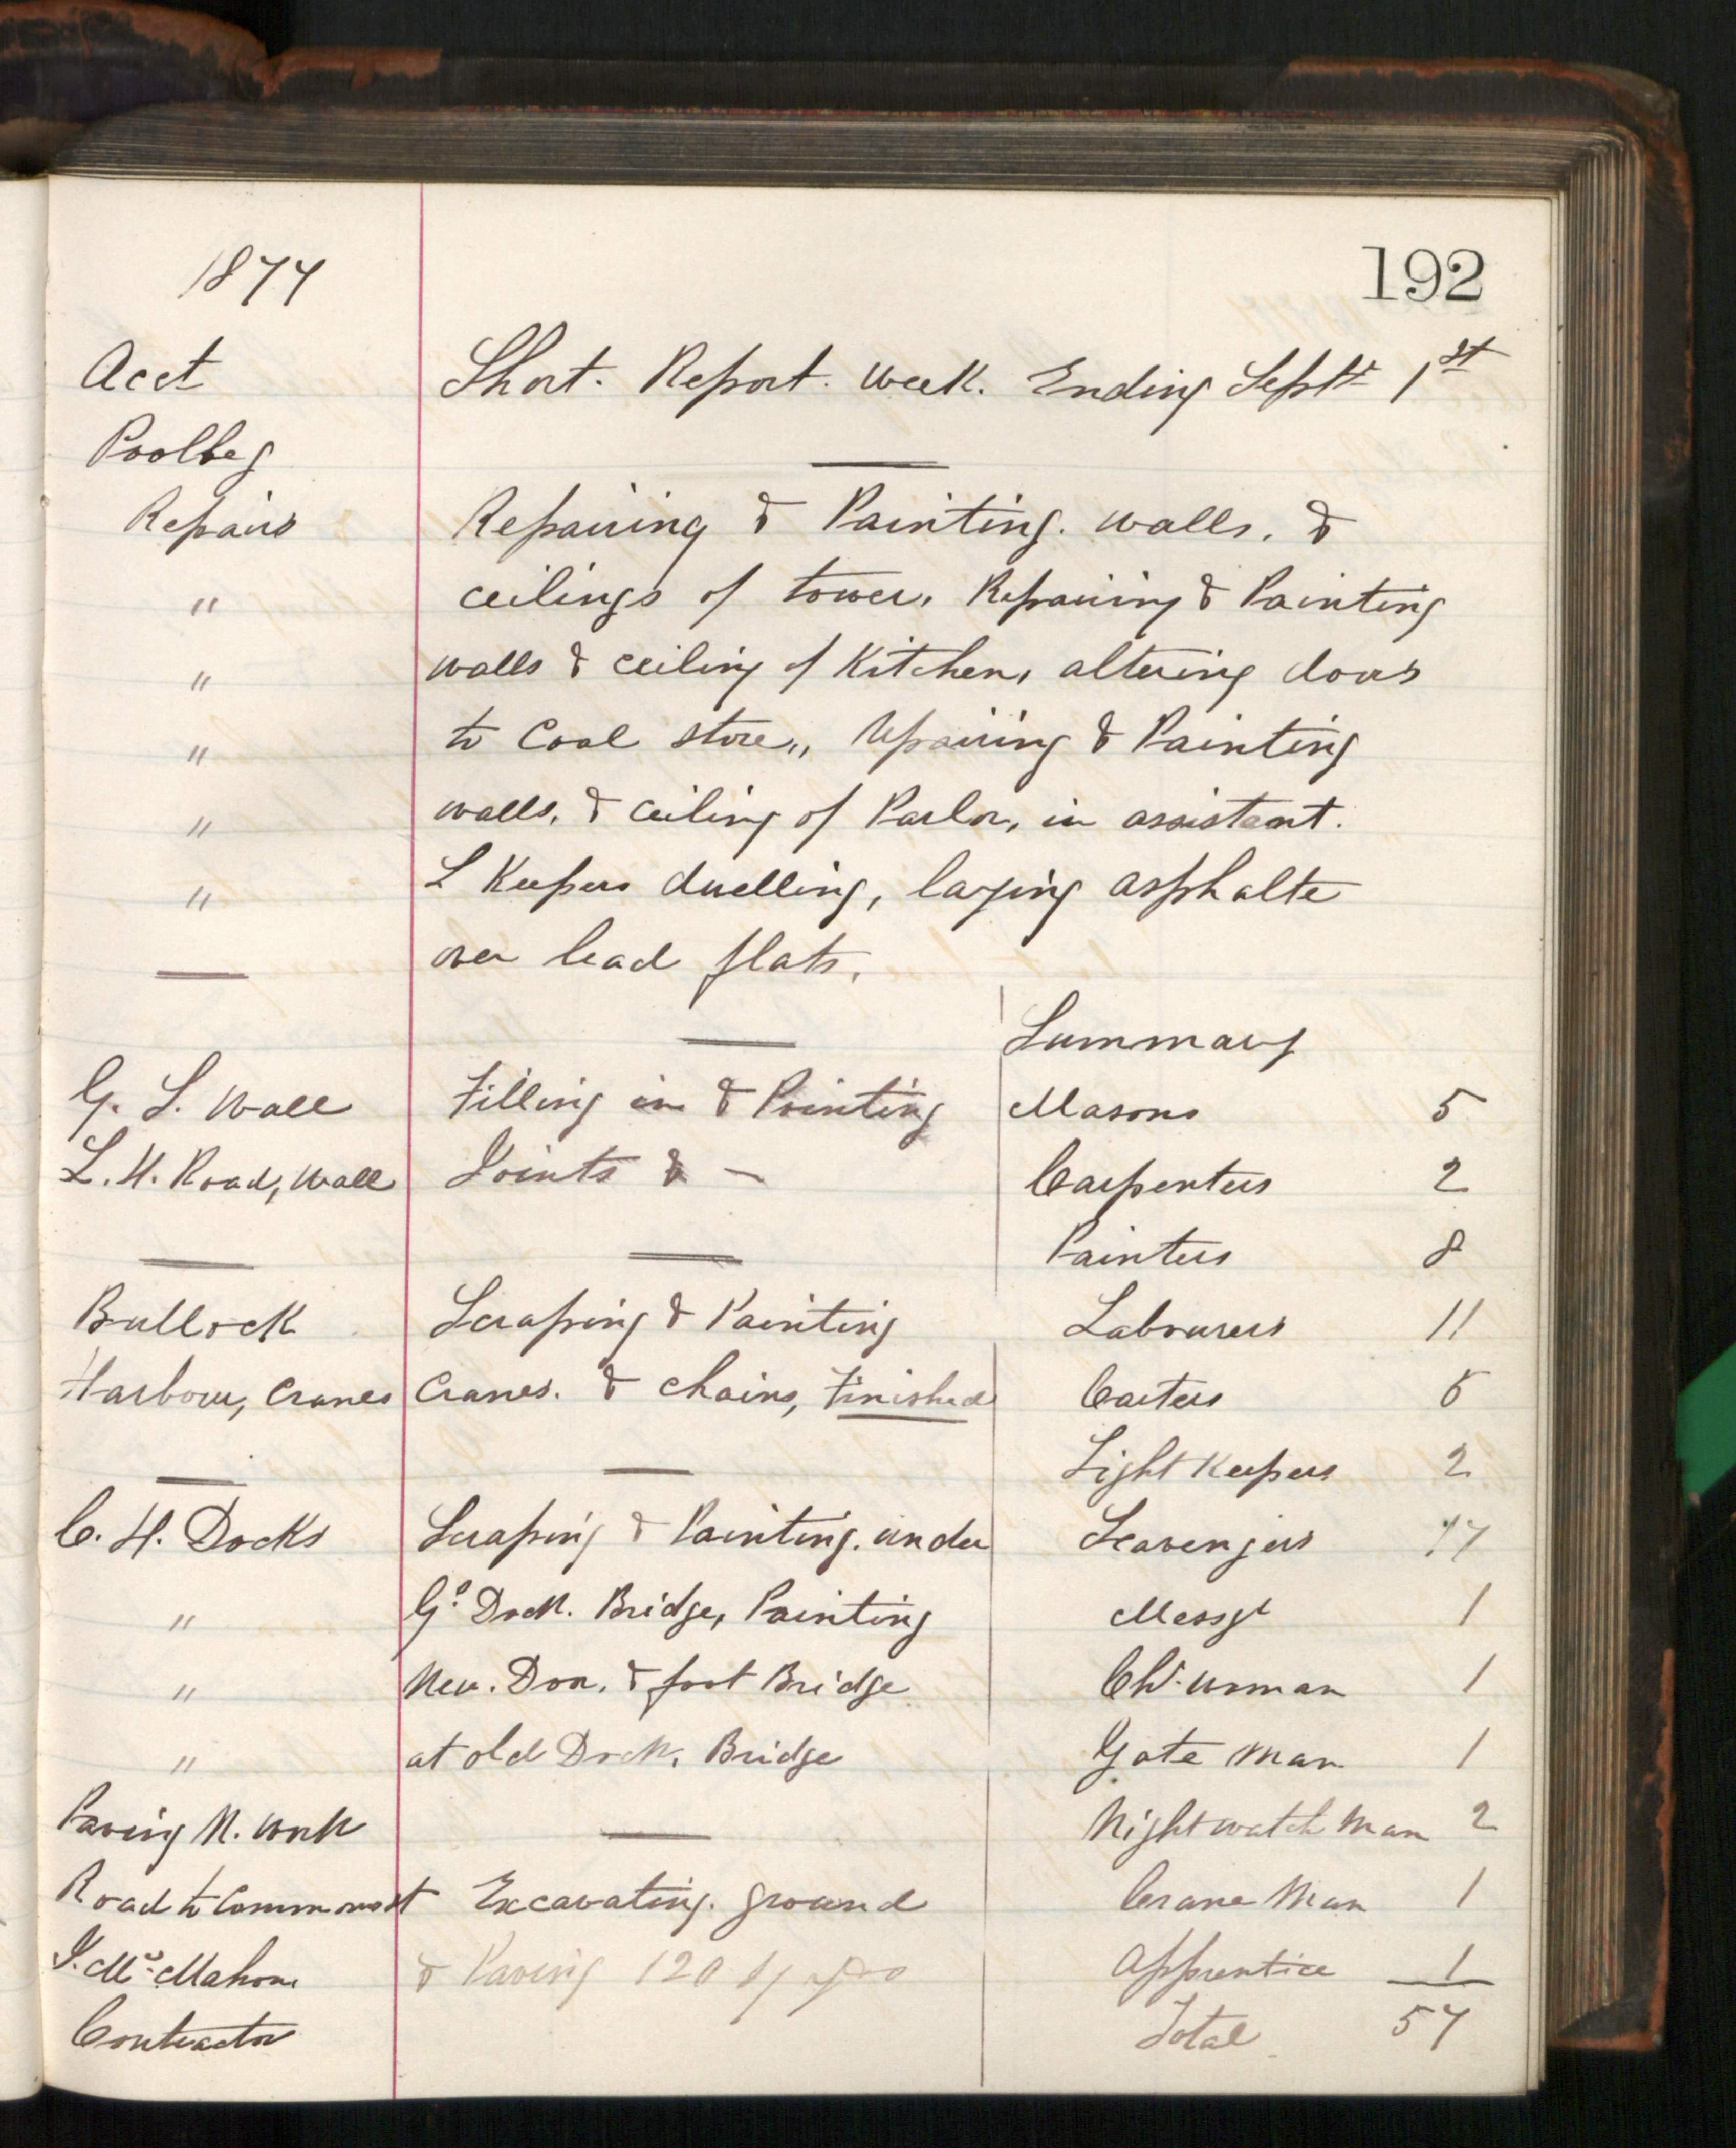 1877
192
Acct Short. Report. Week. Ending Septr 1st
Poolbeg
Repairs Repairing & Painting. walls. &
" ceilings of tower, Repairing & Painting
" walls & ceiling of Kitchen, altering doors
" to Coal store,, repairing & Painting
" walls, & ceiling of Parlor, in assistant.
" L Keepers dwelling, laying asphalte
over lead flats.
Summary
G. S. Wall Filling in & Pointing Masons 5
L. H. Road, Wall Joints & - Carpenters 2
Painters 8
Bullock Scraping & Painting Labourers 11
Harbour, Cranes Cranes. & chains, Finished Carters 5
Light Keepers 2
C. H. Docks Scraping & Painting. under Scavengers 17
" Go Dock. Bridge, Painting Messgr 1
" New. Door. & foot Bridge Ch. woman 1
" at old Dock. Bridge Gate Man 1
Paving N. Wall Night watch Man 2
Road to Common st Excavating. ground Crane Man 1
J. Mc Mahon & Paving 120 sq yds Apprentice 1
Contractor Total 57